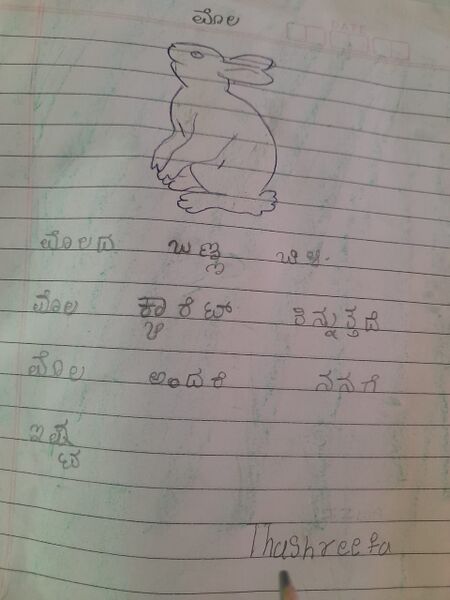 ಮೊಲ
DATE
ಮೊಲದ ಬಣ್ಣ ಬಿಳಿ.
ಮೊಲ ಕ್ಯಾರೆಟ್ ತಿನ್ನುತ್ತದೆ
ಮೊಲ ಅಂದರೆ ನನಗೆ
ಇಷ್ಟ
Thashreefa